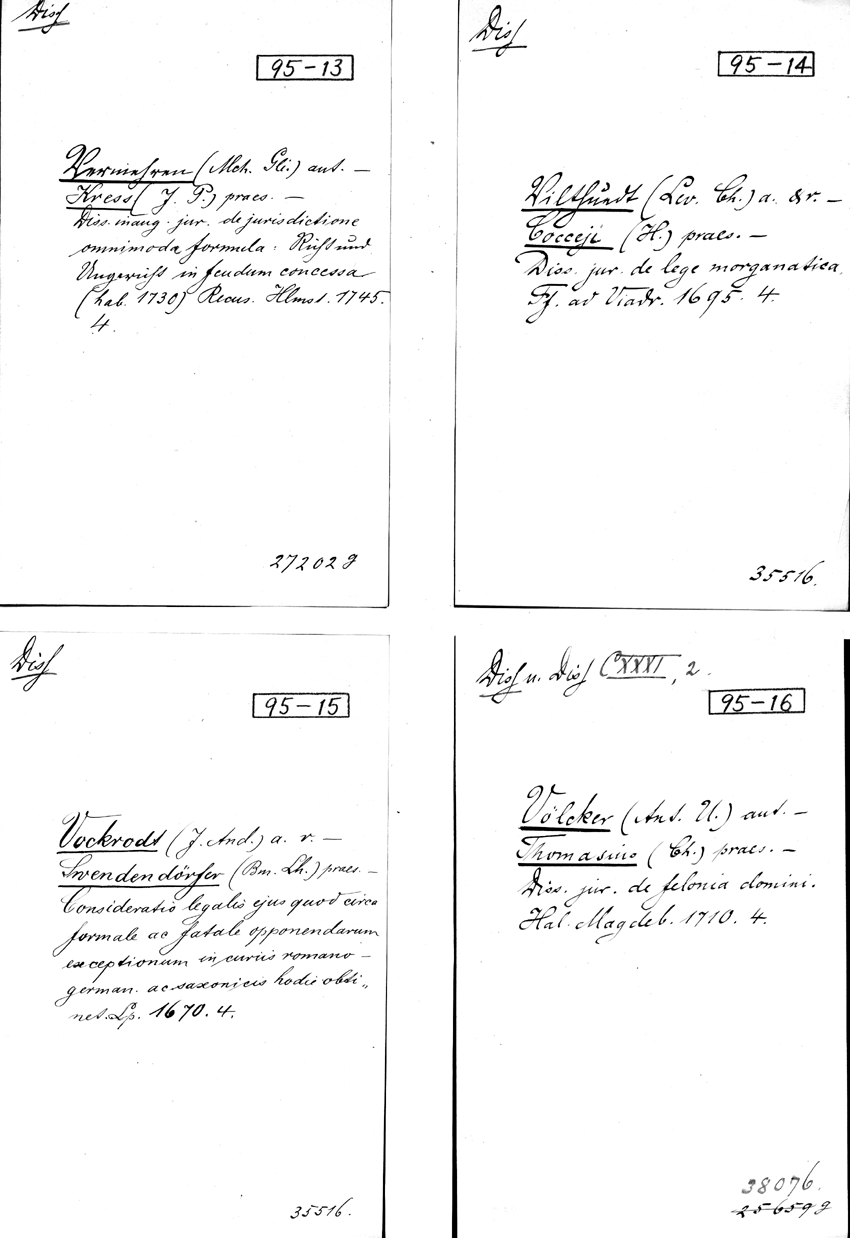 Diss
95-13
Vermehren (Mch. Gli.) aut. —
Kress (J. P.) praes. —
Diss. inaug. jur. de jurisdictione
omnimoda formula: Richt und
Ungericht in feudum concessa
(hab. 1730) Recus. Hlmst. 1745.
4.
272029
Diss
95-14
(Lev. Ch.) a. & r. —
Cocceji (H.) praes. —
Diss. jur. de lege morganatica.
Ff. ad Viadr. 1695. 4.
35516.
Diss
95-15
Vockrodt (J. And.) a. r. —
Swendendörfer (Bm. Lh.) praes. —
Consideratio legalis ejus quod circa
formale ac fatale opponendarum
exceptionum in curiis romano-
german. ac saxonicis hodie obti„
net. Lp. 1670. 4.
35516.
Diss u. Diss CXXXI, 2.
95-16
Völcker (Ant. U.) aut. —
Thomasius (Ch.) praes. —
Diss. jur. de felonia domini.
Hal. Magdeb. 1710. 4.
38076.
256599